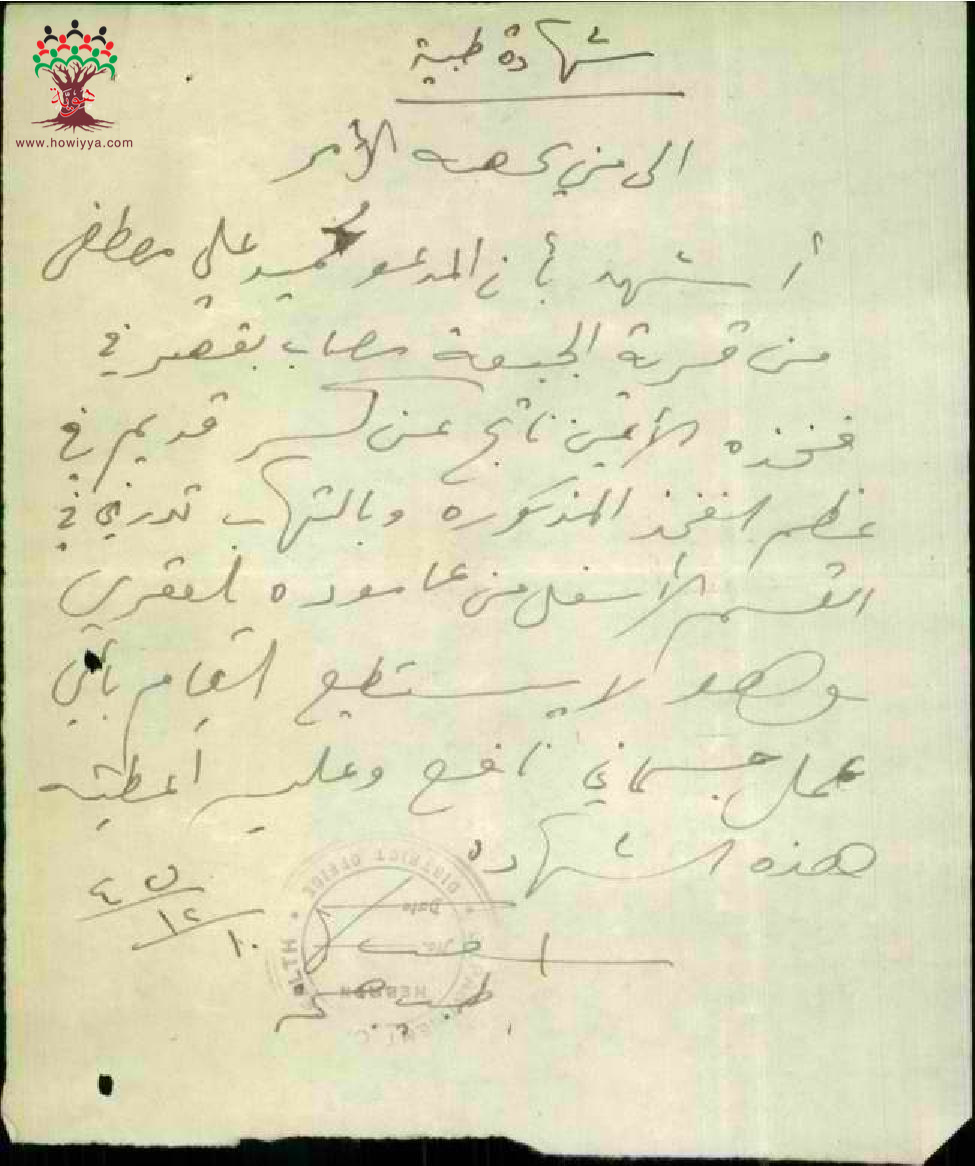 هوية
www.howiyya.com
شهادة طبية
الى من يهمه الأمر
أشهد بأن المدعو محمد علي مصطفى
من قرية الجبعة مصاب بقصر في
فخذه الأيمن ناتج عن كسر قديم في
عظم الفخذ المذكوره وبالتهاب تدرني في
القسم الأسفل من عاموده الفقري
وهو لا يستطيع القيام بأي
عمل جسماني نافع وعليه اعطيته
هذه الشهادة
١٠/١٢/٤٥
DISTRICT OFFICE
Date
No.
HEBRON
طبيب